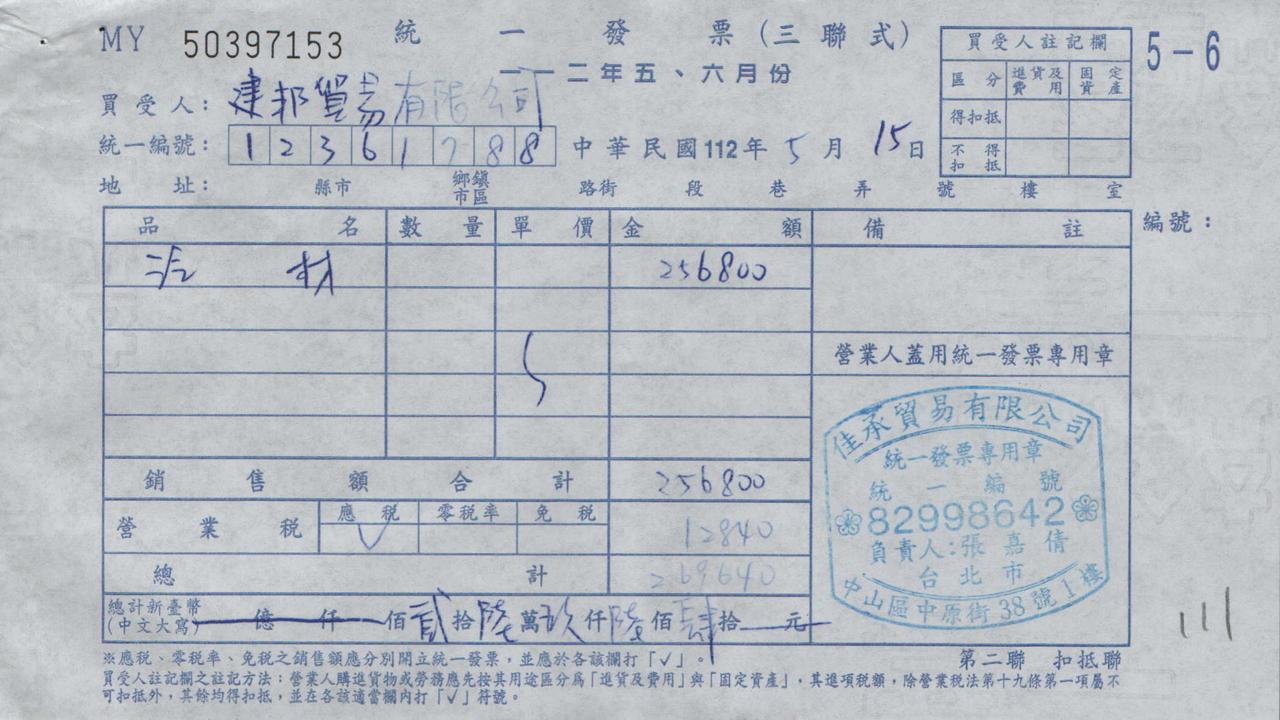 MY 50397153 統一發票(三聯式)
一一二年五、六月份
5-6
買受人：建邦貿易有限公司
統一編號：12361788 中華民國112年5月15日
地址： 縣市 鄉鎮市區 路街 段 巷 弄 號 樓 室
買受人註記欄
區分 進貨及費用 固定資產
得扣抵
不得扣抵
編號：
品名 數量 單價 金額 備註
材 256800
營業人蓋用統一發票專用章
銷售額合計 256800
應稅 零稅率 免稅
營業稅 V 12840
總計 269640
總計新臺幣(中文大寫) 億 仟 佰 貳拾 陸萬 玖仟 陸佰 肆拾 元
佳承貿易有限公司
統一發票專用章
統一編號
82998642
負責人:張嘉倩
台北市
中山區中原街38號1樓
※應稅、零稅率、免稅之銷售額應分別開立統一發票，並應於各該欄打「✓」。
第二聯 扣抵聯
買受人註記欄之註記方法：營業人購進貨物或勞務應先按其用途區分為「進貨及費用」與「固定資產」，其進項稅額，除營業稅法第十九條第一項屬不
可扣抵外，其餘均得扣抵，並在各該適當欄內打「✓」符號。